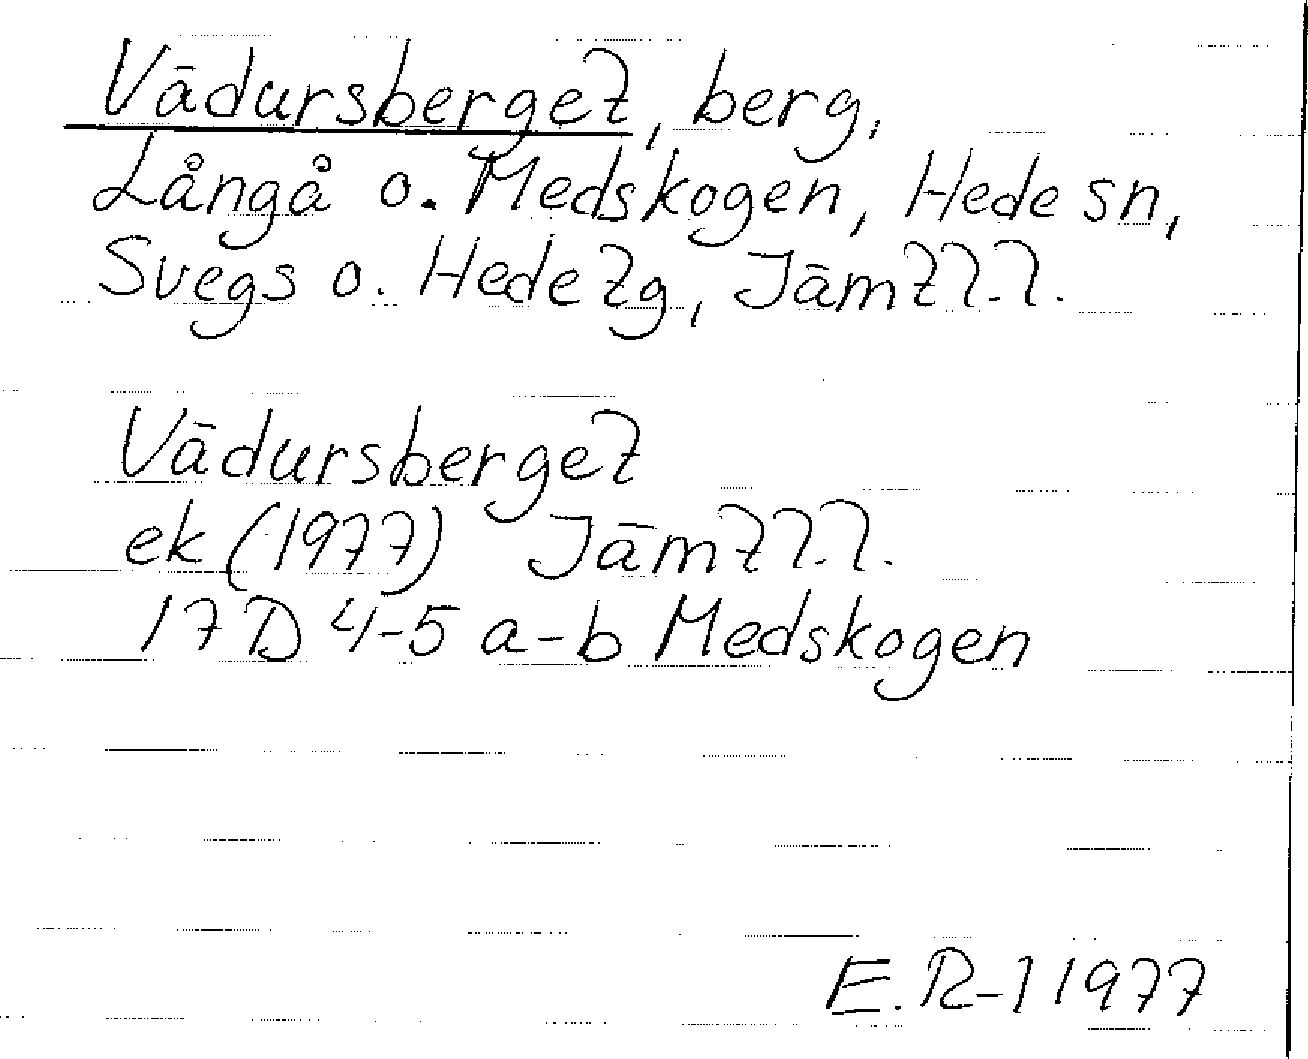 Vädursberget, berg,
Långå o. Medskogen, Hede sn,
Svegs o. Hede tg, Jämtl.l.
Vädursberget
ek (1977) Jämtl.l.
17D 4-5 a-b Medskogen
E.R-l 1977